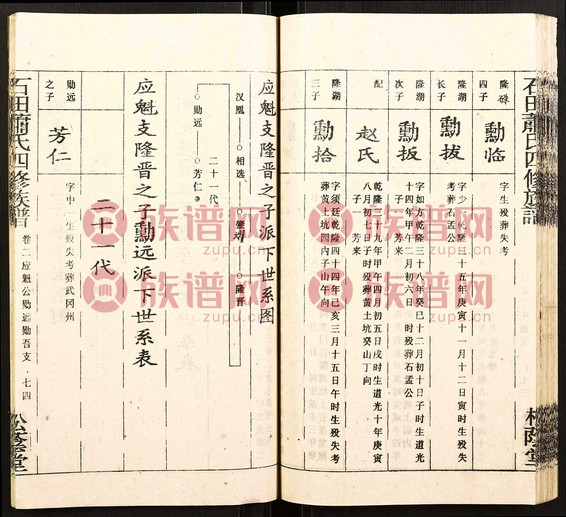 石田萧氏四修族谱
松荫堂
隆碌
四子
勳临
字生殁葬失考
隆湖
长子
勳拔
考葬石孟公
隆湖
次子
勳扳
字如方乾隆三十八年癸巳十二月初十日子时生道光
十四年甲午二月初六日一时殁葬石孟公
子一芳来
配
赵氏
乾隆三十九年甲午四月初五日戌时生道光十年庚寅
八月初七日子时殁葬黄土坑癸山丁向
子一芳来
隆湖
三子
勳拾
字须廷乾隆四十四年己亥三月十五日午时生殁失考
葬黄土坑园内子山午向
应魁支隆晋之子勳远派下世系图
汉凰 相选 肇 隆晋
二十一代
勋远 芳仁
应魁支隆晋之子勳远派下世系表
二十一代
勋远
之子
芳仁
字中 生殁失考葬武冈州
石田萧氏四修族谱
卷二应魁公勋远勋吾支
七四
松荫堂
族谱网
zupu.cn